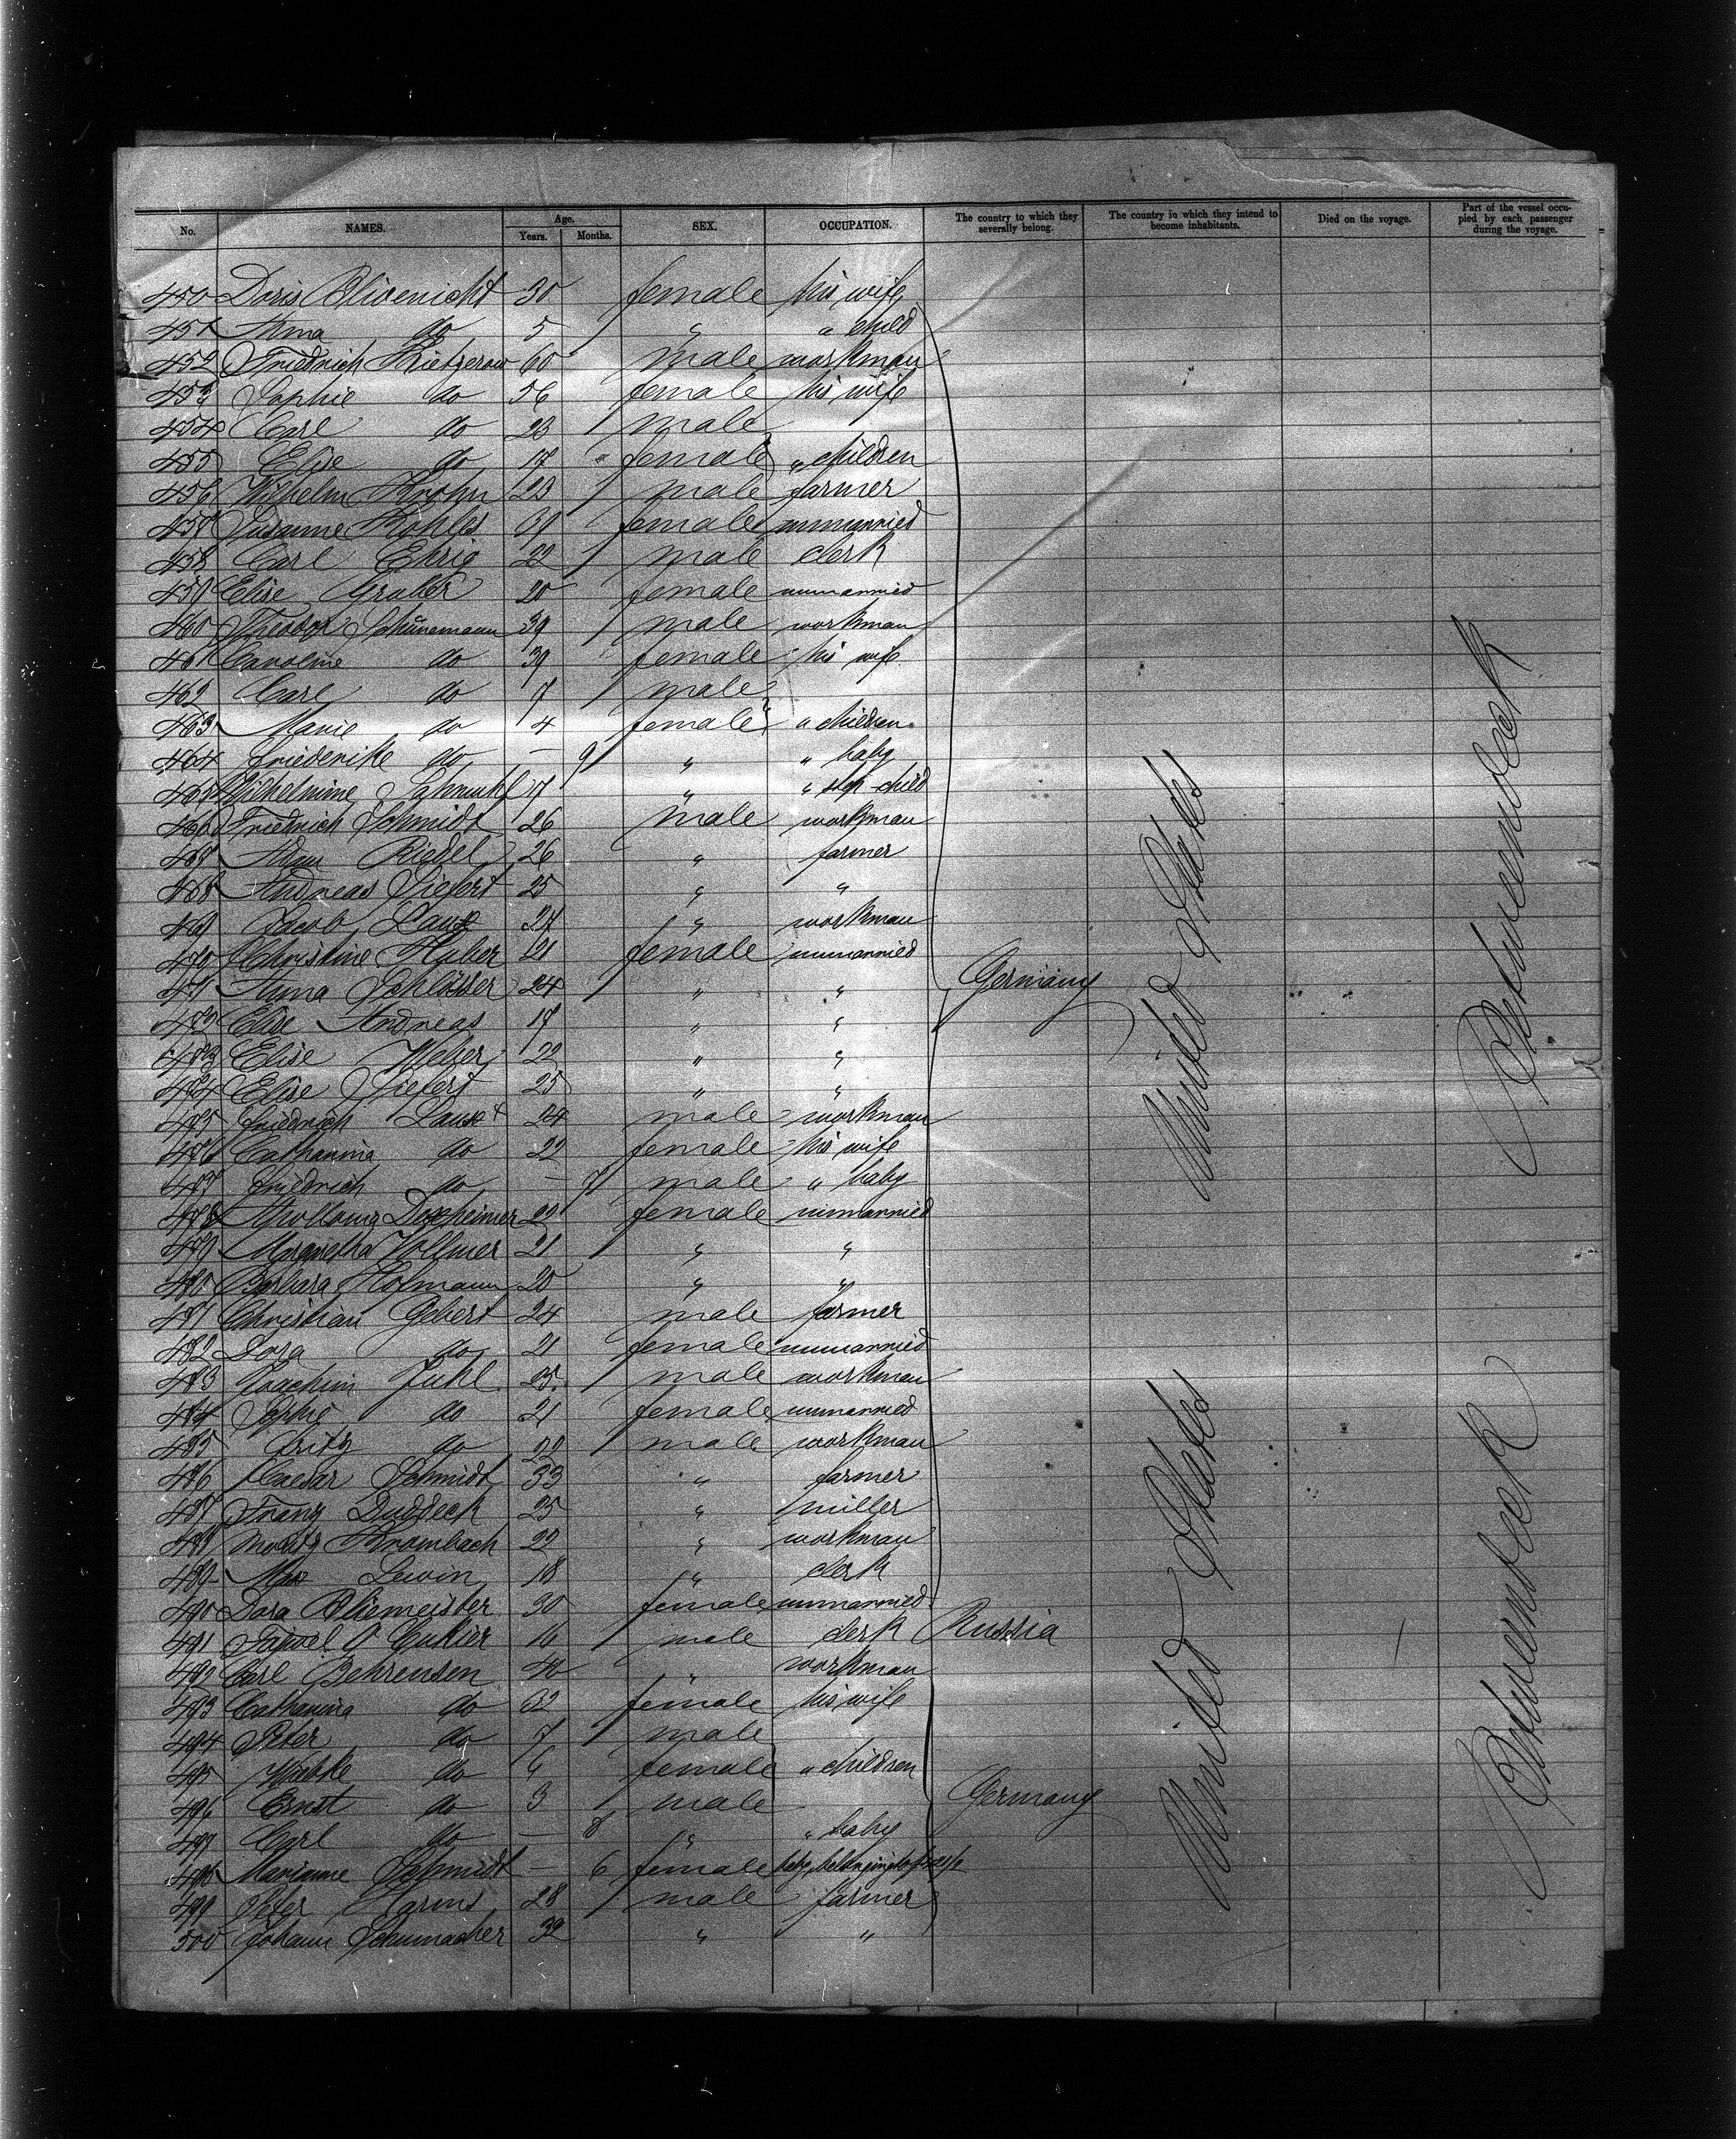 No. NAMES. Age. Years. Months. SEX. OCCUPATION. The country to which they severally belong. The country in which they intend to become inhabitants. Died on the voyage. Part of the vessel occupied by each passenger during the voyage.
450 Doris 30 female his wife
451 Anna do 5 " " child
452 Friedrich Rietzerow 60 male workman
453 Sophie do 56 female his wife
454 Carl do 23 male
455 Elise do 17 female " children
456 Wilhelm Krohn 23 male farmer
457 Susanne Kohles 30 female unmarried
458 Carl Ehrig 22 male clerk
459 Elise Graber 20 female unmarried
460 Theodor Schünemann 39 male workman
461 Caroline do 39 female his wife
462 Carl do 7 male
463 Marie do 4 female " children
464 Friederike do – 9 " " baby
465 Wilhelmine 17 " " step-child
466 Friedrich Schmidt 26 male workman
467 Adam Riedel 26 " farmer
468 Andreas Siefert 25 " "
469 Jacob 27 " workman
470 Christine Huber 21 female unmarried
471 Anna Schlösser 24 " " Germany
472 Elise Andreas 17 " "
473 Elise Weber 22 " "
474 Elise Siefert 25 " "
475 Friedrich 24 male workman
476 Catharina do 22 female his wife
477 Friedrich do – 7 male " baby
478 Dexheimer 22 female unmarried
479 Margretha Vollmer 21 " "
480 Barbara Hofmann 20 " "
481 Christian Gebert 24 male farmer
482 Dora do 21 female unmarried
483 Joachim Juhl 25 male workman
484 Sophie do 21 female unmarried
485 Fritz do 22 male workman
486 Caesar Schmidt 33 " farmer
487 Franz Duddeck 25 " miller
488 Moritz Krombach 22 " workman
489 Max Lewin 18 " clerk
490 Dora Bliemeister 30 female unmarried
491 Cukier 16 male clerk Russia
492 Carl Behrensen 40 " workman
493 Catharina do 32 female his wife
494 Peter do 7 male
495 Wiebke do 6 female " children
496 Ernst do 3 male Germany
497 Carl do – 8 " " baby
498 Marianne Schmidt – 6 female baby, belonging to
499 Peter Harms 28 male farmer
500 Johann Schumacher 32 " "
United States
United States
Betweendeck
Betweendeck